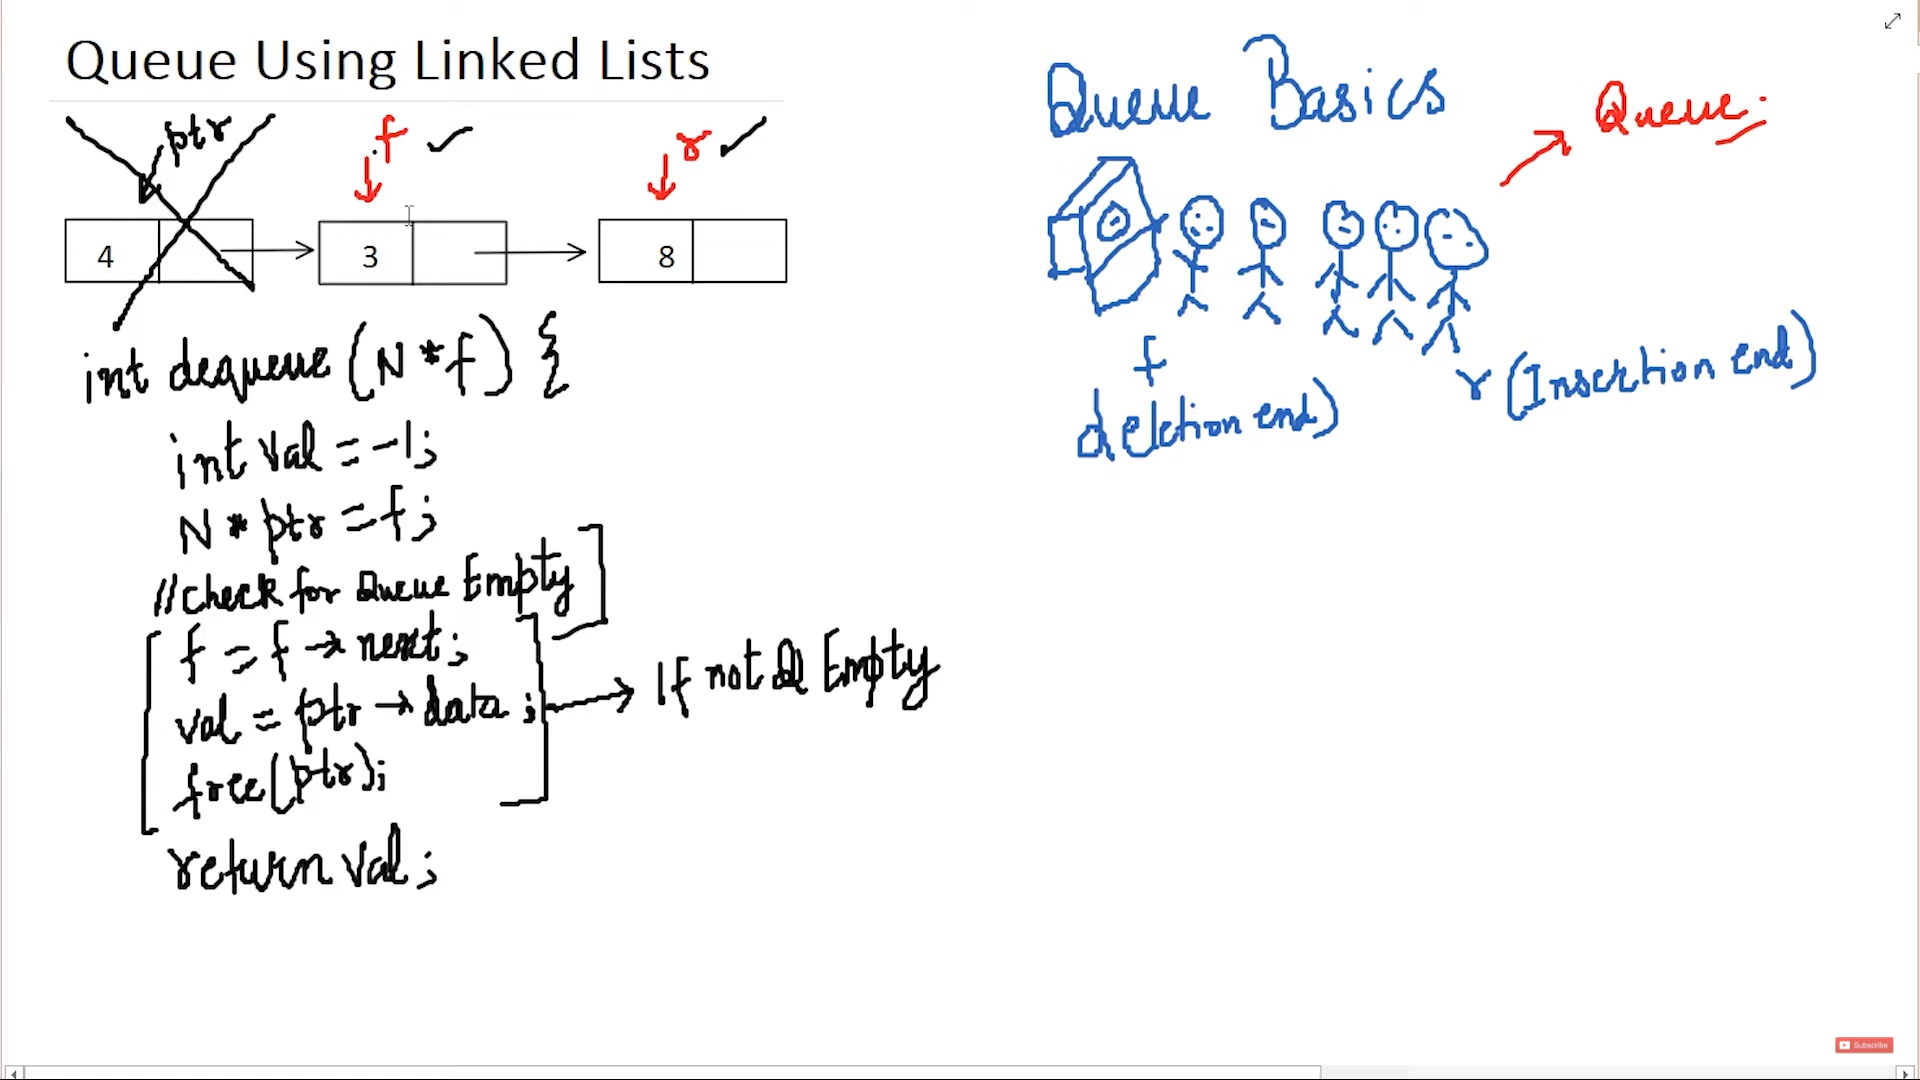 Queue Using Linked Lists
ptr
f
r
4
3
8
int dequeue (N *f) {
int val = -1;
N * ptr = f;
//check for Queue Empty
f = f → next;
val = ptr → data;
free(ptr);
If not Q Empty
return val;
Queue Basics
Queue
f
deletion end)
r (Insertion end)
Subscribe